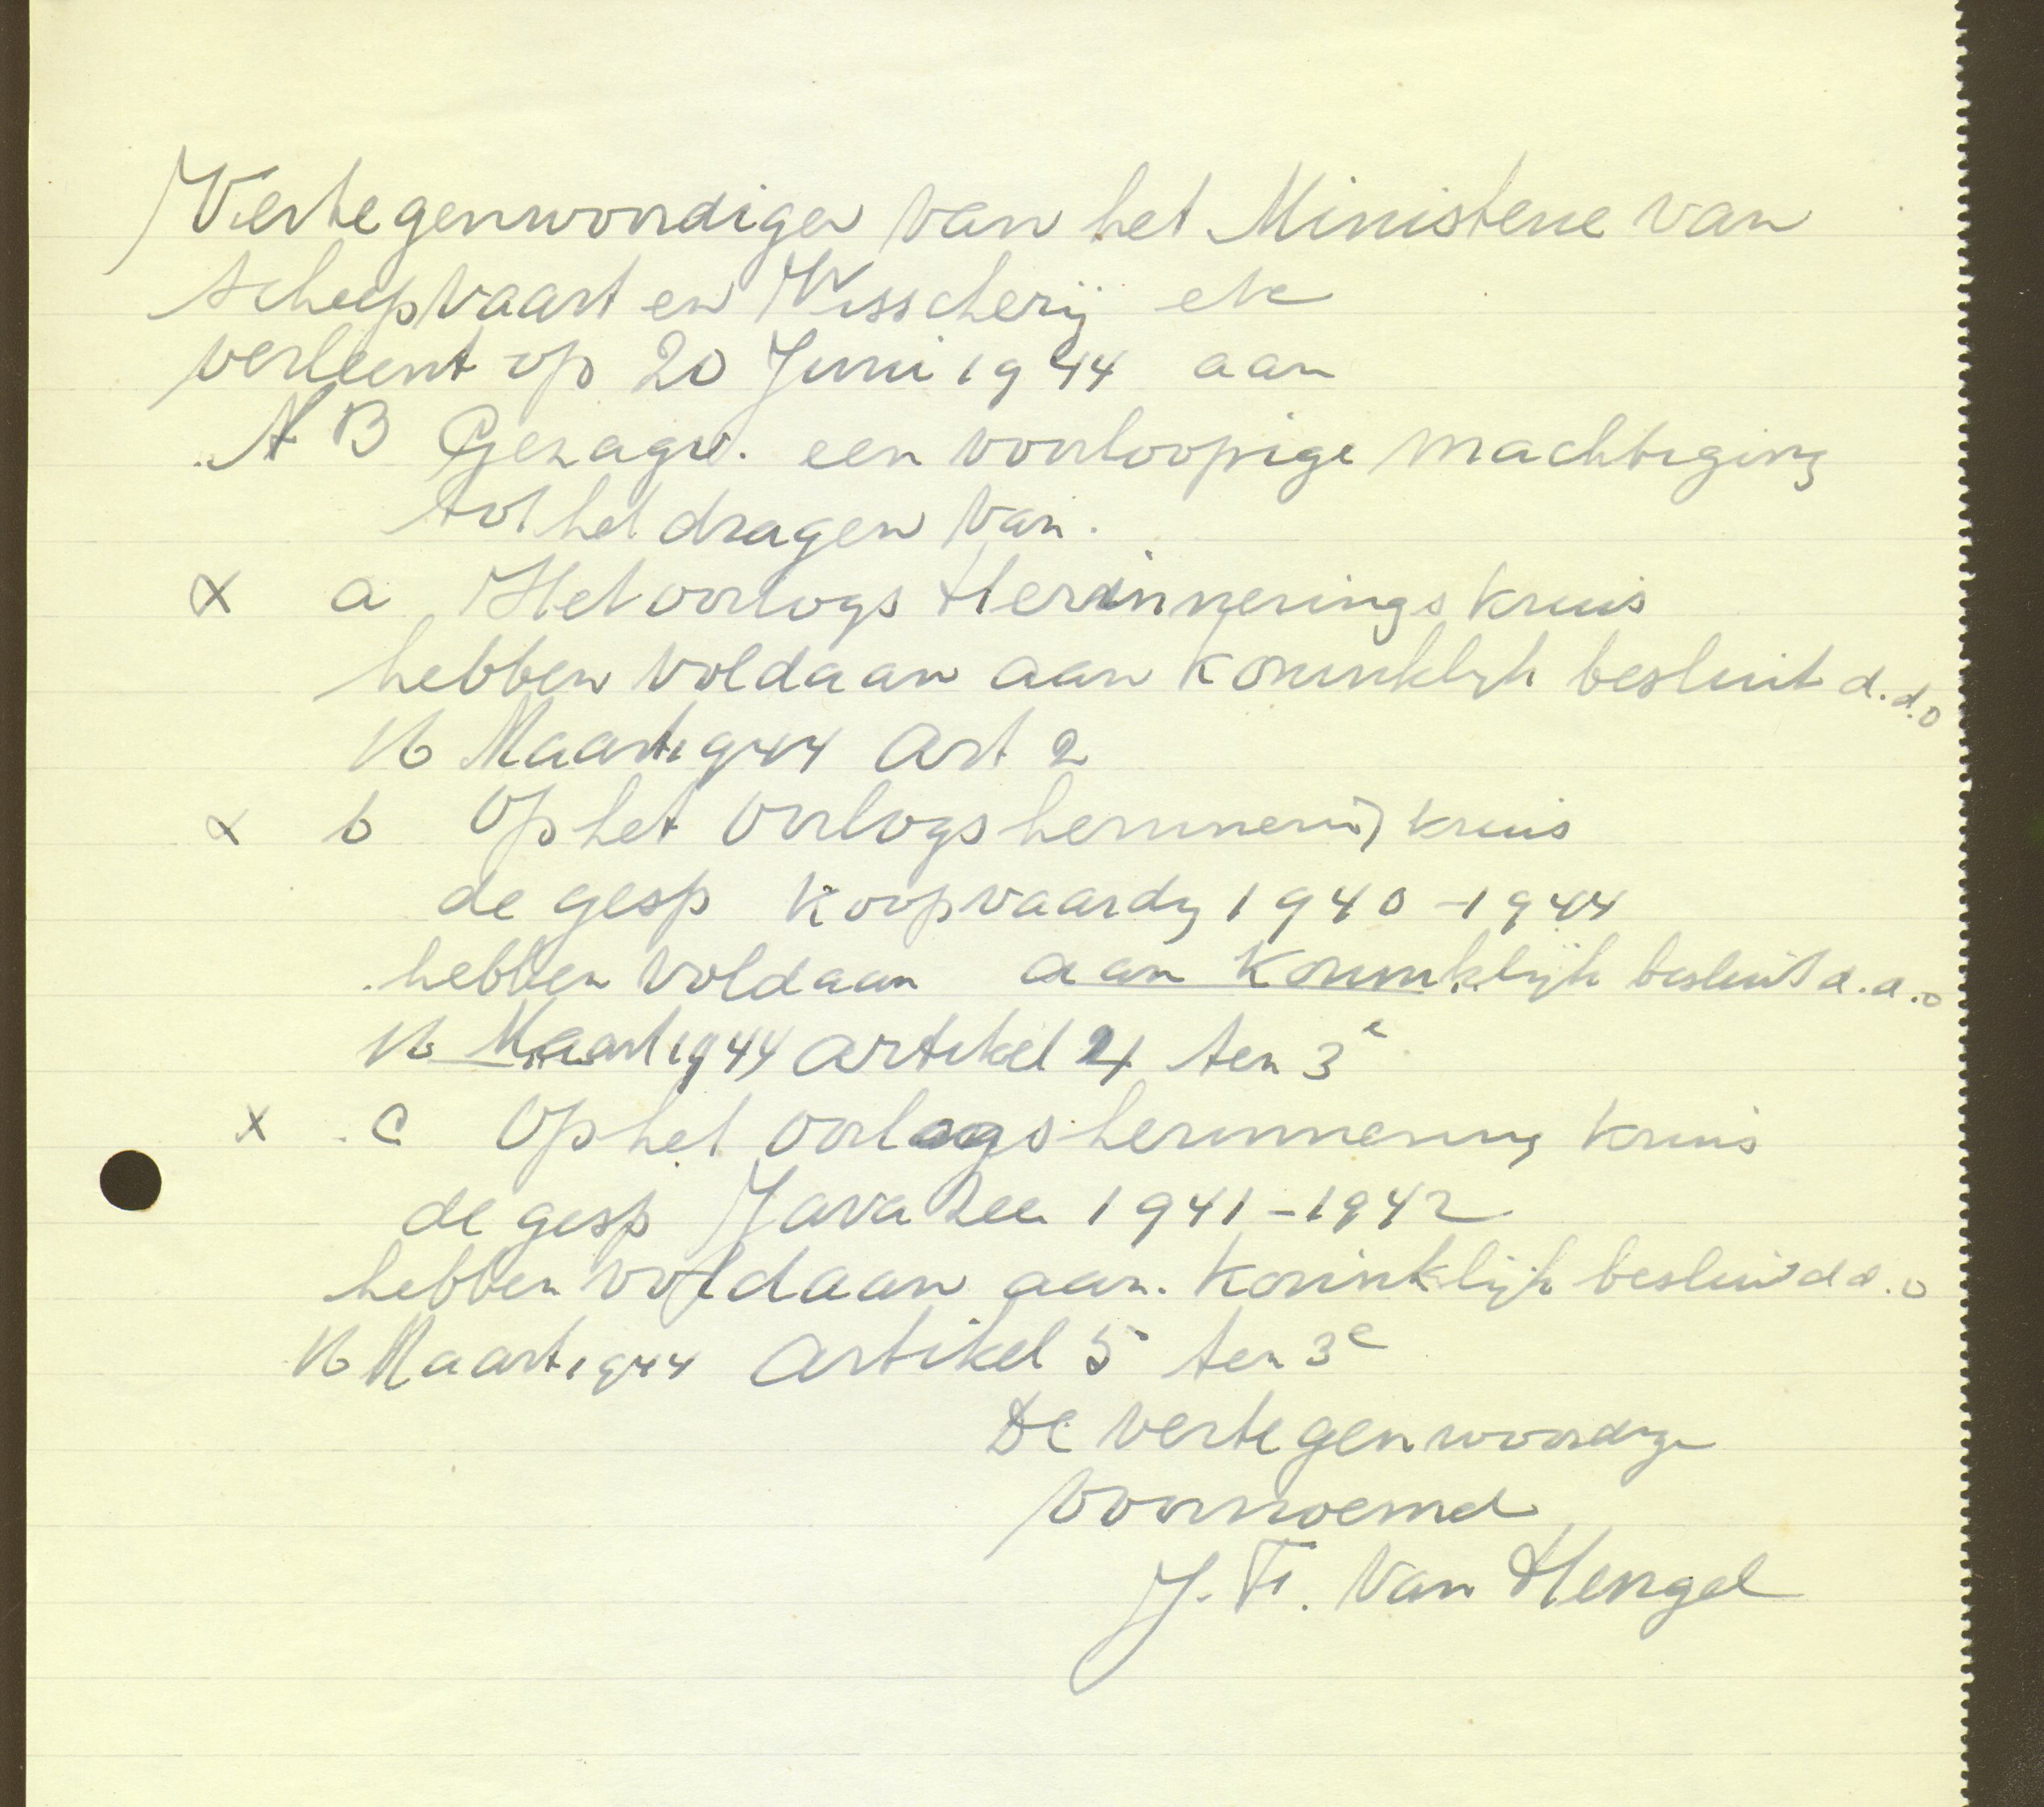 Vertegenwoordiger van het Ministerie van
scheepvaart en Visscherij etc
verleent op 20 Juni 1944 aan
A B Gezagv. een voorloopige machtiging
tot het dragen van.
x a Het oorlogs Herinnerings kruis
hebben voldaan aan Koninklijk besluit d.d.o
16 Maart 1944 Art 2
x b Op het Oorlogsherinnering kruis
de gesp Koopvaardij 1940-1944
hebben voldaan aan Koninklijk besluit d.d.o
16 Maart 1944 Artikel 4 ten 3e
x C Op het Oorlogsherinnering kruis
de gesp Java Zee 1941-1942
hebben voldaan aan. Koninklijk besluit d d.o
16 Maart 1944 Artikel 5 ten 3e
De vertegenwoordiger
voornoemd
J. Fr. Van Hengel